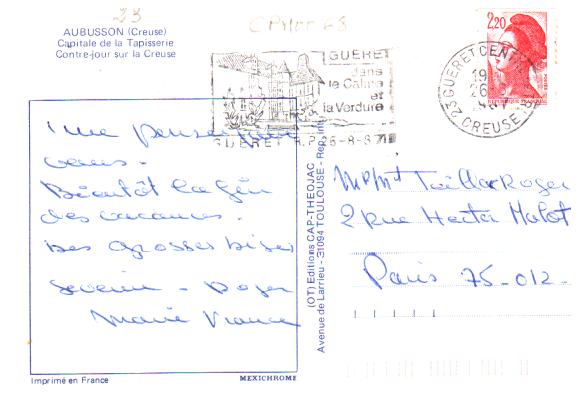 23
AUBUSSON (Creuse)
Capitale de la Tapisserie
Contre-jour sur la Creuse
GUERET
dans
le Calme
et
la Verdure
GUERET R.P. 26-8-87
2,20
REPUBLIQUE FRANÇAISE
23 GUERET CENTRE
19
26
CREUSE
Une pensée pour
vous.
Bientôt la fin
des vacances.
Des grosses bises
Séverine - Roger
Marie France
(OT) Editions CAP-THEOJAC
Avenue de Larrieu - 31094 TOULOUSE - Rep. int.
Mr Mme Taillar Roger
2 rue Hector Malot
Paris 75-012-
Imprimé en France
MEXICHROME